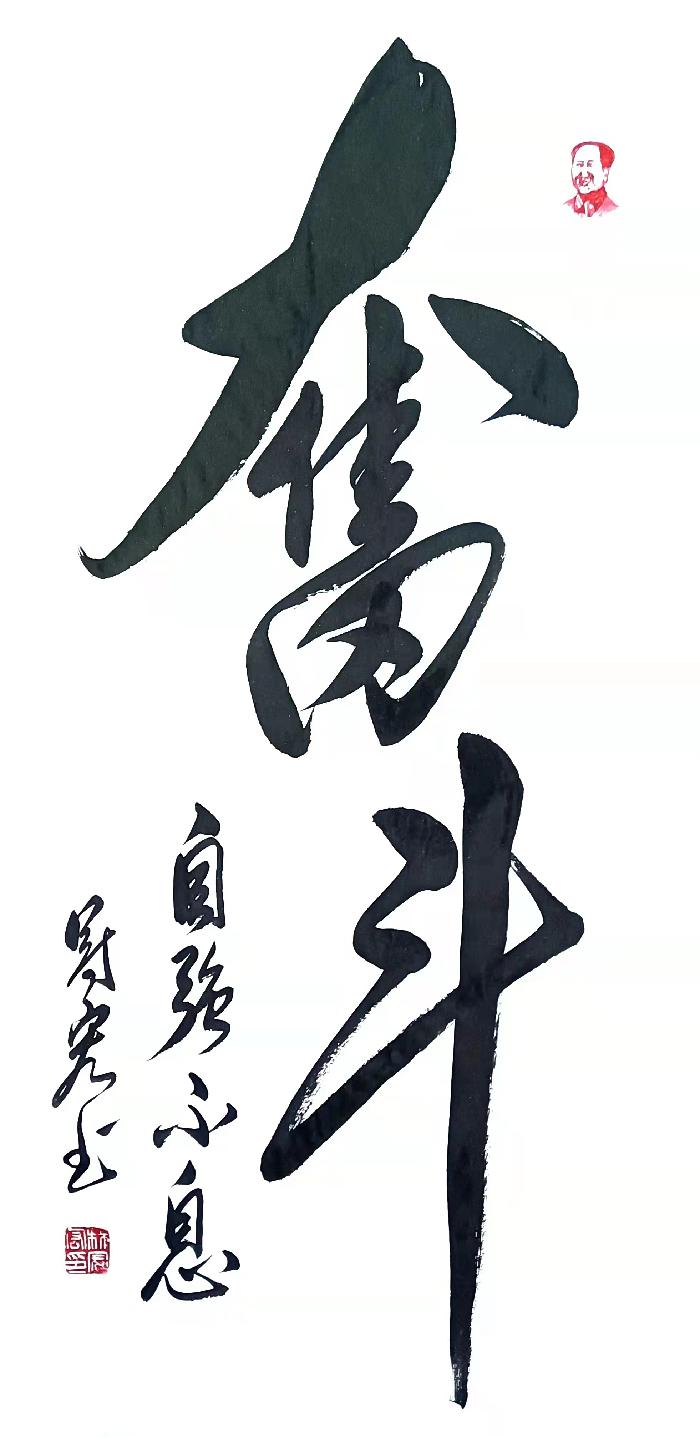 奮斗
自強不息